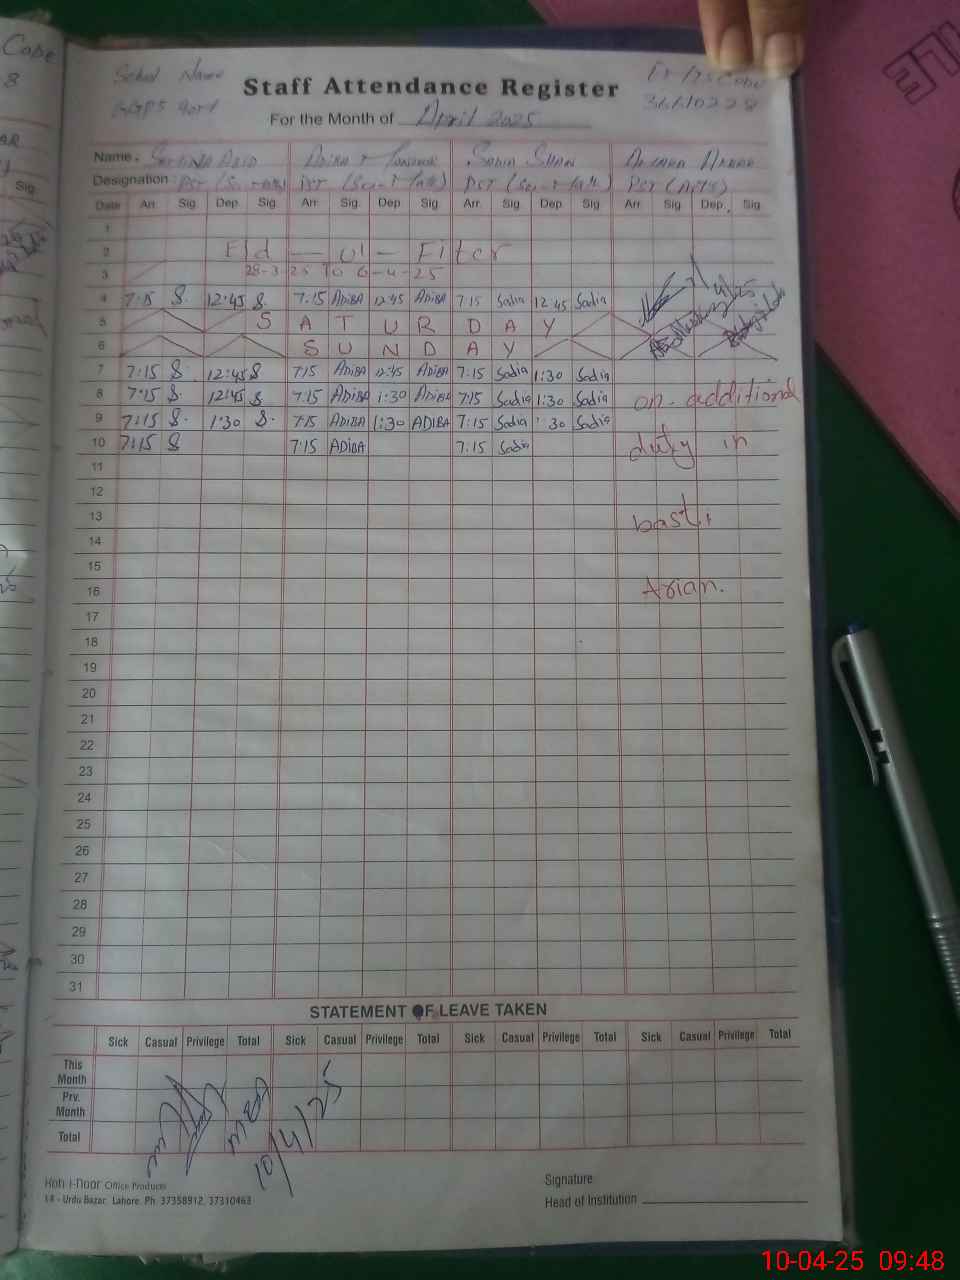 School Name
Staff Attendance Register
For the Month of April 2025
Name
Designation
Date Arr. Sig. Dep. Sig. Arr. Sig. Dep. Sig. Arr. Sig. Dep. Sig. Arr. Sig. Dep. Sig.
1
2 Eid - ul - Fiter
3 28-3-25 To 6-4-25
4 7:15 S. 12:45 S. 7:15 ADIBA 12:45 ADIBA 7:15 Sadia 12:45 Sadia
5 SATURDAY
6 SUNDAY
7 7:15 S. 12:45 S 7:15 ADIBA 12:45 ADIBA 7:15 Sadia 1:30 Sadia
8 7:15 S. 12:45 S. 7:15 ADIBA 1:30 ADIBA 7:15 Sadia 1:30 Sadia on additional
9 7:15 S. 1:30 S. 7:15 ADIBA 1:30 ADIBA 7:15 Sadia :30 Sadia
10 7:15 S 7:15 ADIBA 7:15 Sadia duty in
11
12
13 basti
14
15
16 Arian.
17
18
19
20
21
22
23
24
25
26
27
28
29
30
31
STATEMENT OF LEAVE TAKEN
Sick Casual Privilege Total Sick Casual Privilege Total Sick Casual Privilege Total Sick Casual Privilege Total
This Month
Prv. Month
Total
10/4/25
Koh-i-noor Office Products
14 - Urdu Bazar, Lahore. Ph: 37358912, 37310463
Signature
Head of Institution
10-04-25 09:48